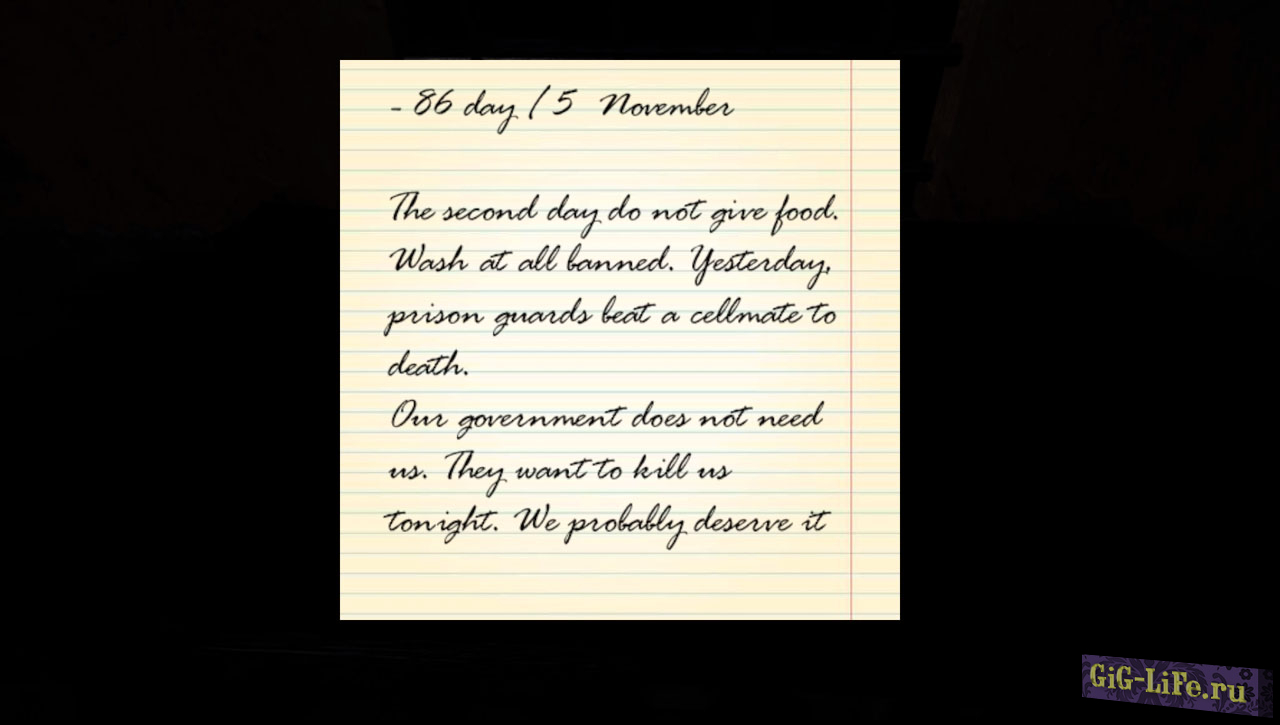 - 86 day / 5 November
The second day do not give food.
Wash at all banned. Yesterday,
prison guards beat a cellmate to
death.
Our government does not need
us. They want to kill us
tonight. We probably deserve it
GiG-LiFe.ru